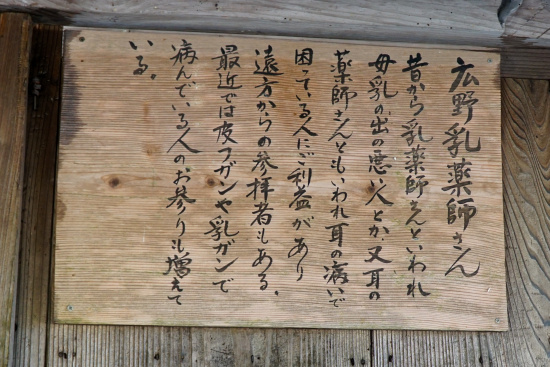 広野乳薬師さん
昔から乳薬師さんといわれ
母乳の出の悪い人とか又耳の
薬師さんともいわれ耳の病いで
困っている人にご利益があり
遠方からの参拝者もある。
最近では皮フガンや乳ガンで
病んでいる人のお参りも増えて
いる。